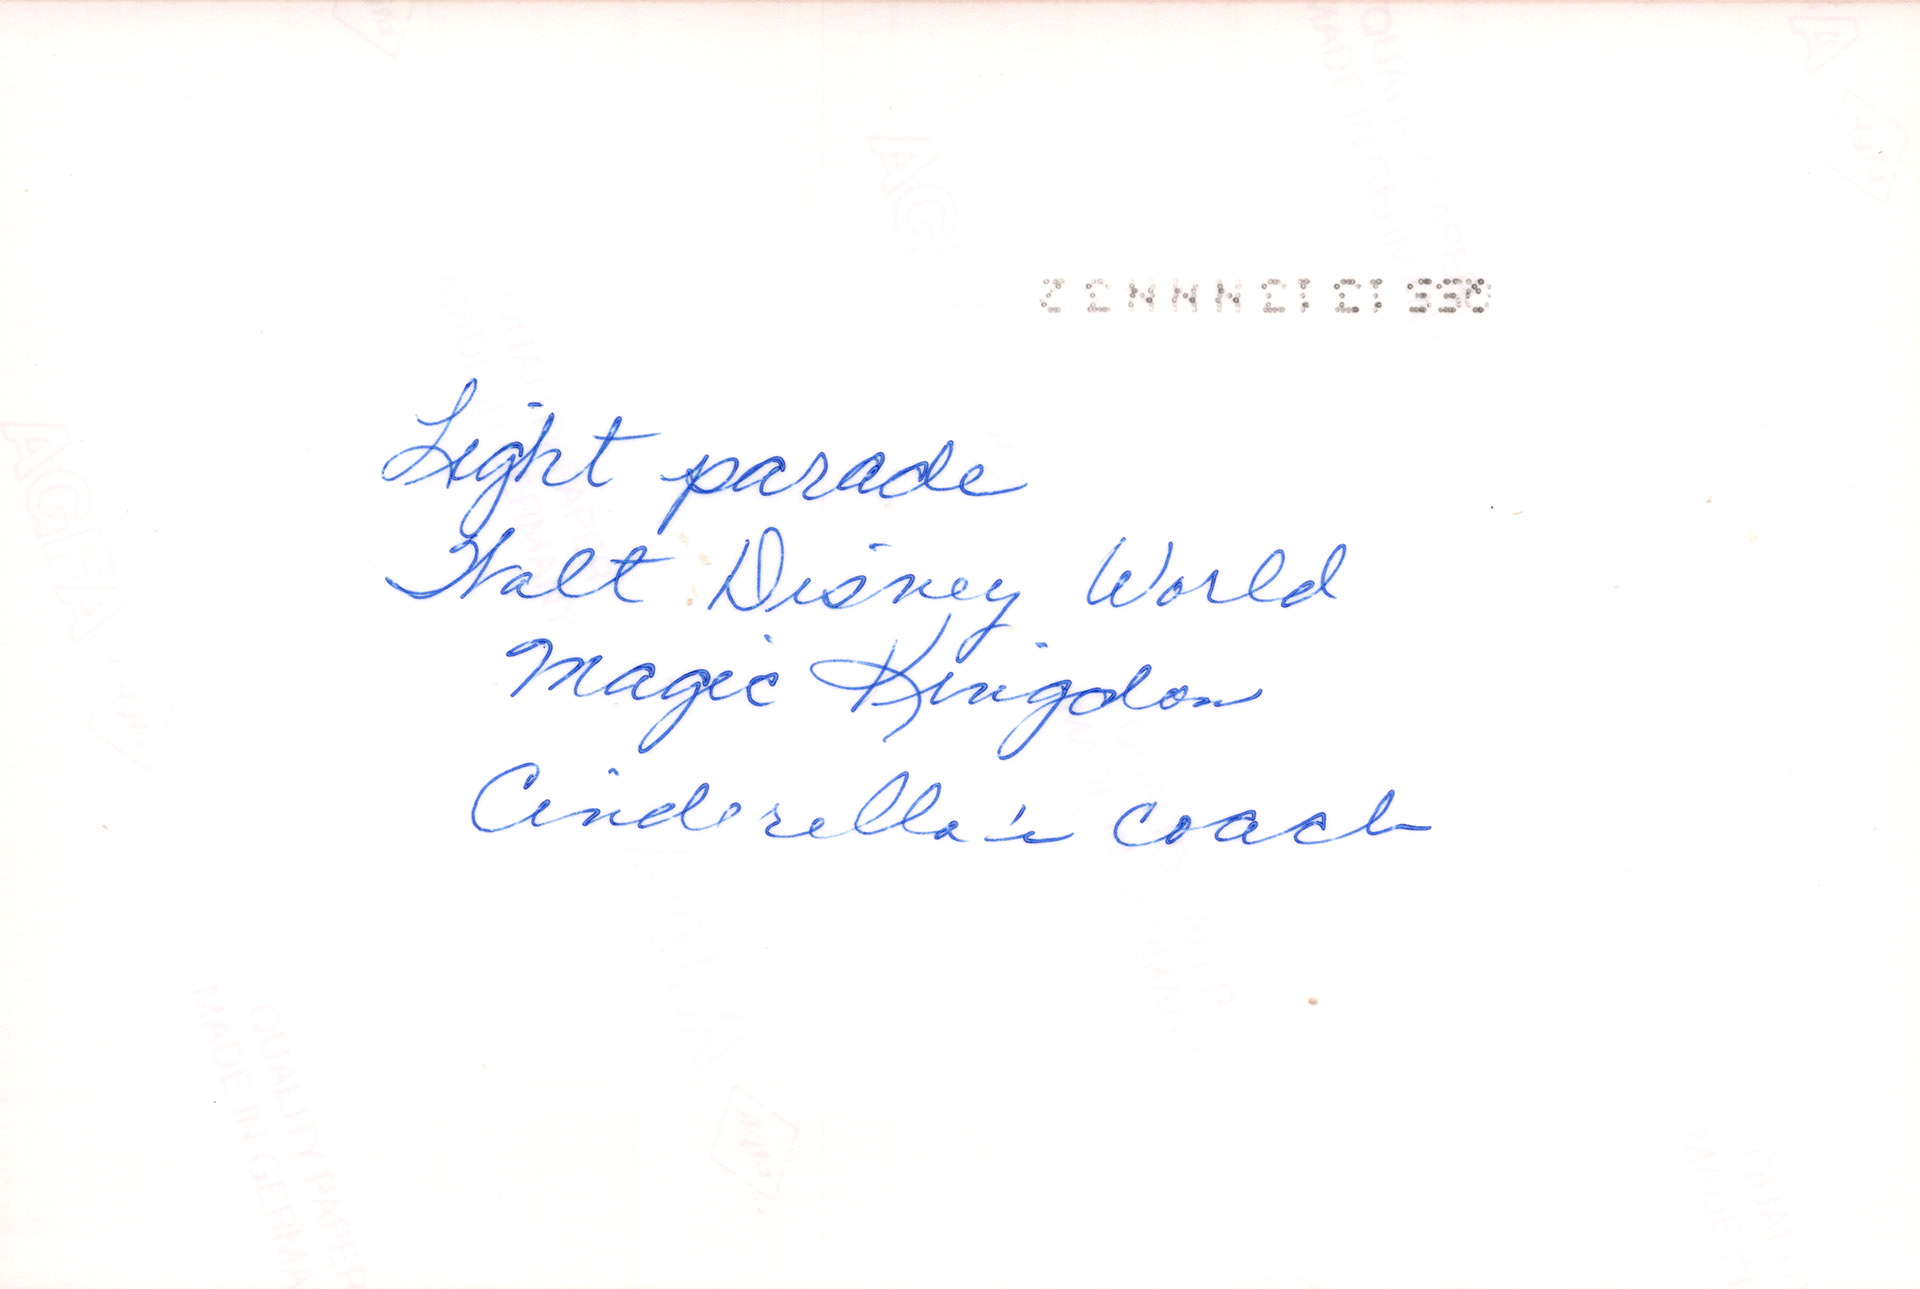 Light parade
Walt Disney World
Magic Kingdom
Cinderella's coach
AGFA
QUALITY PAPER
MADE IN GERMA